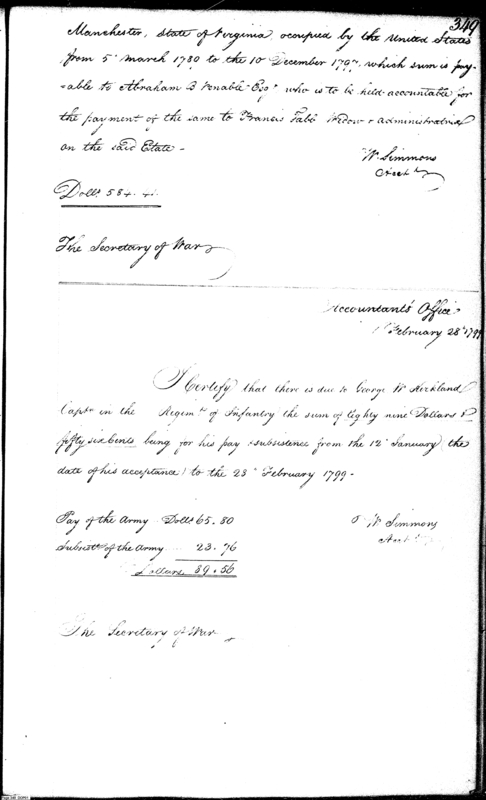 349
Manchester, State of Virginia, occupied by the United States
from 5th March 1780 to the 10 December 1797, which sum is pay-
-able to Abraham B Venable Esqr who is to be held accountable for
the payment of the same to Francis Tabb Widow & administratrix
on the said Estate -
Wm Simmons
Acct
Dolls 584. 41.
The Secretary of War
Accountants Office
February 28th 1799
I Certify that there is due to George W Kirkland
Captn in the Regimt of Infantry the sum of Eighty nine Dollars &
fifty six Cents being for his pay & subsistence from the 12th January (the
date of his acceptance) to the 23d February 1799 -
Pay of the Army Dolls 65. 80
Subsistce of the Army 23. 76
Dollars 89. 56
Wm Simmons
Acct
The Secretary of War